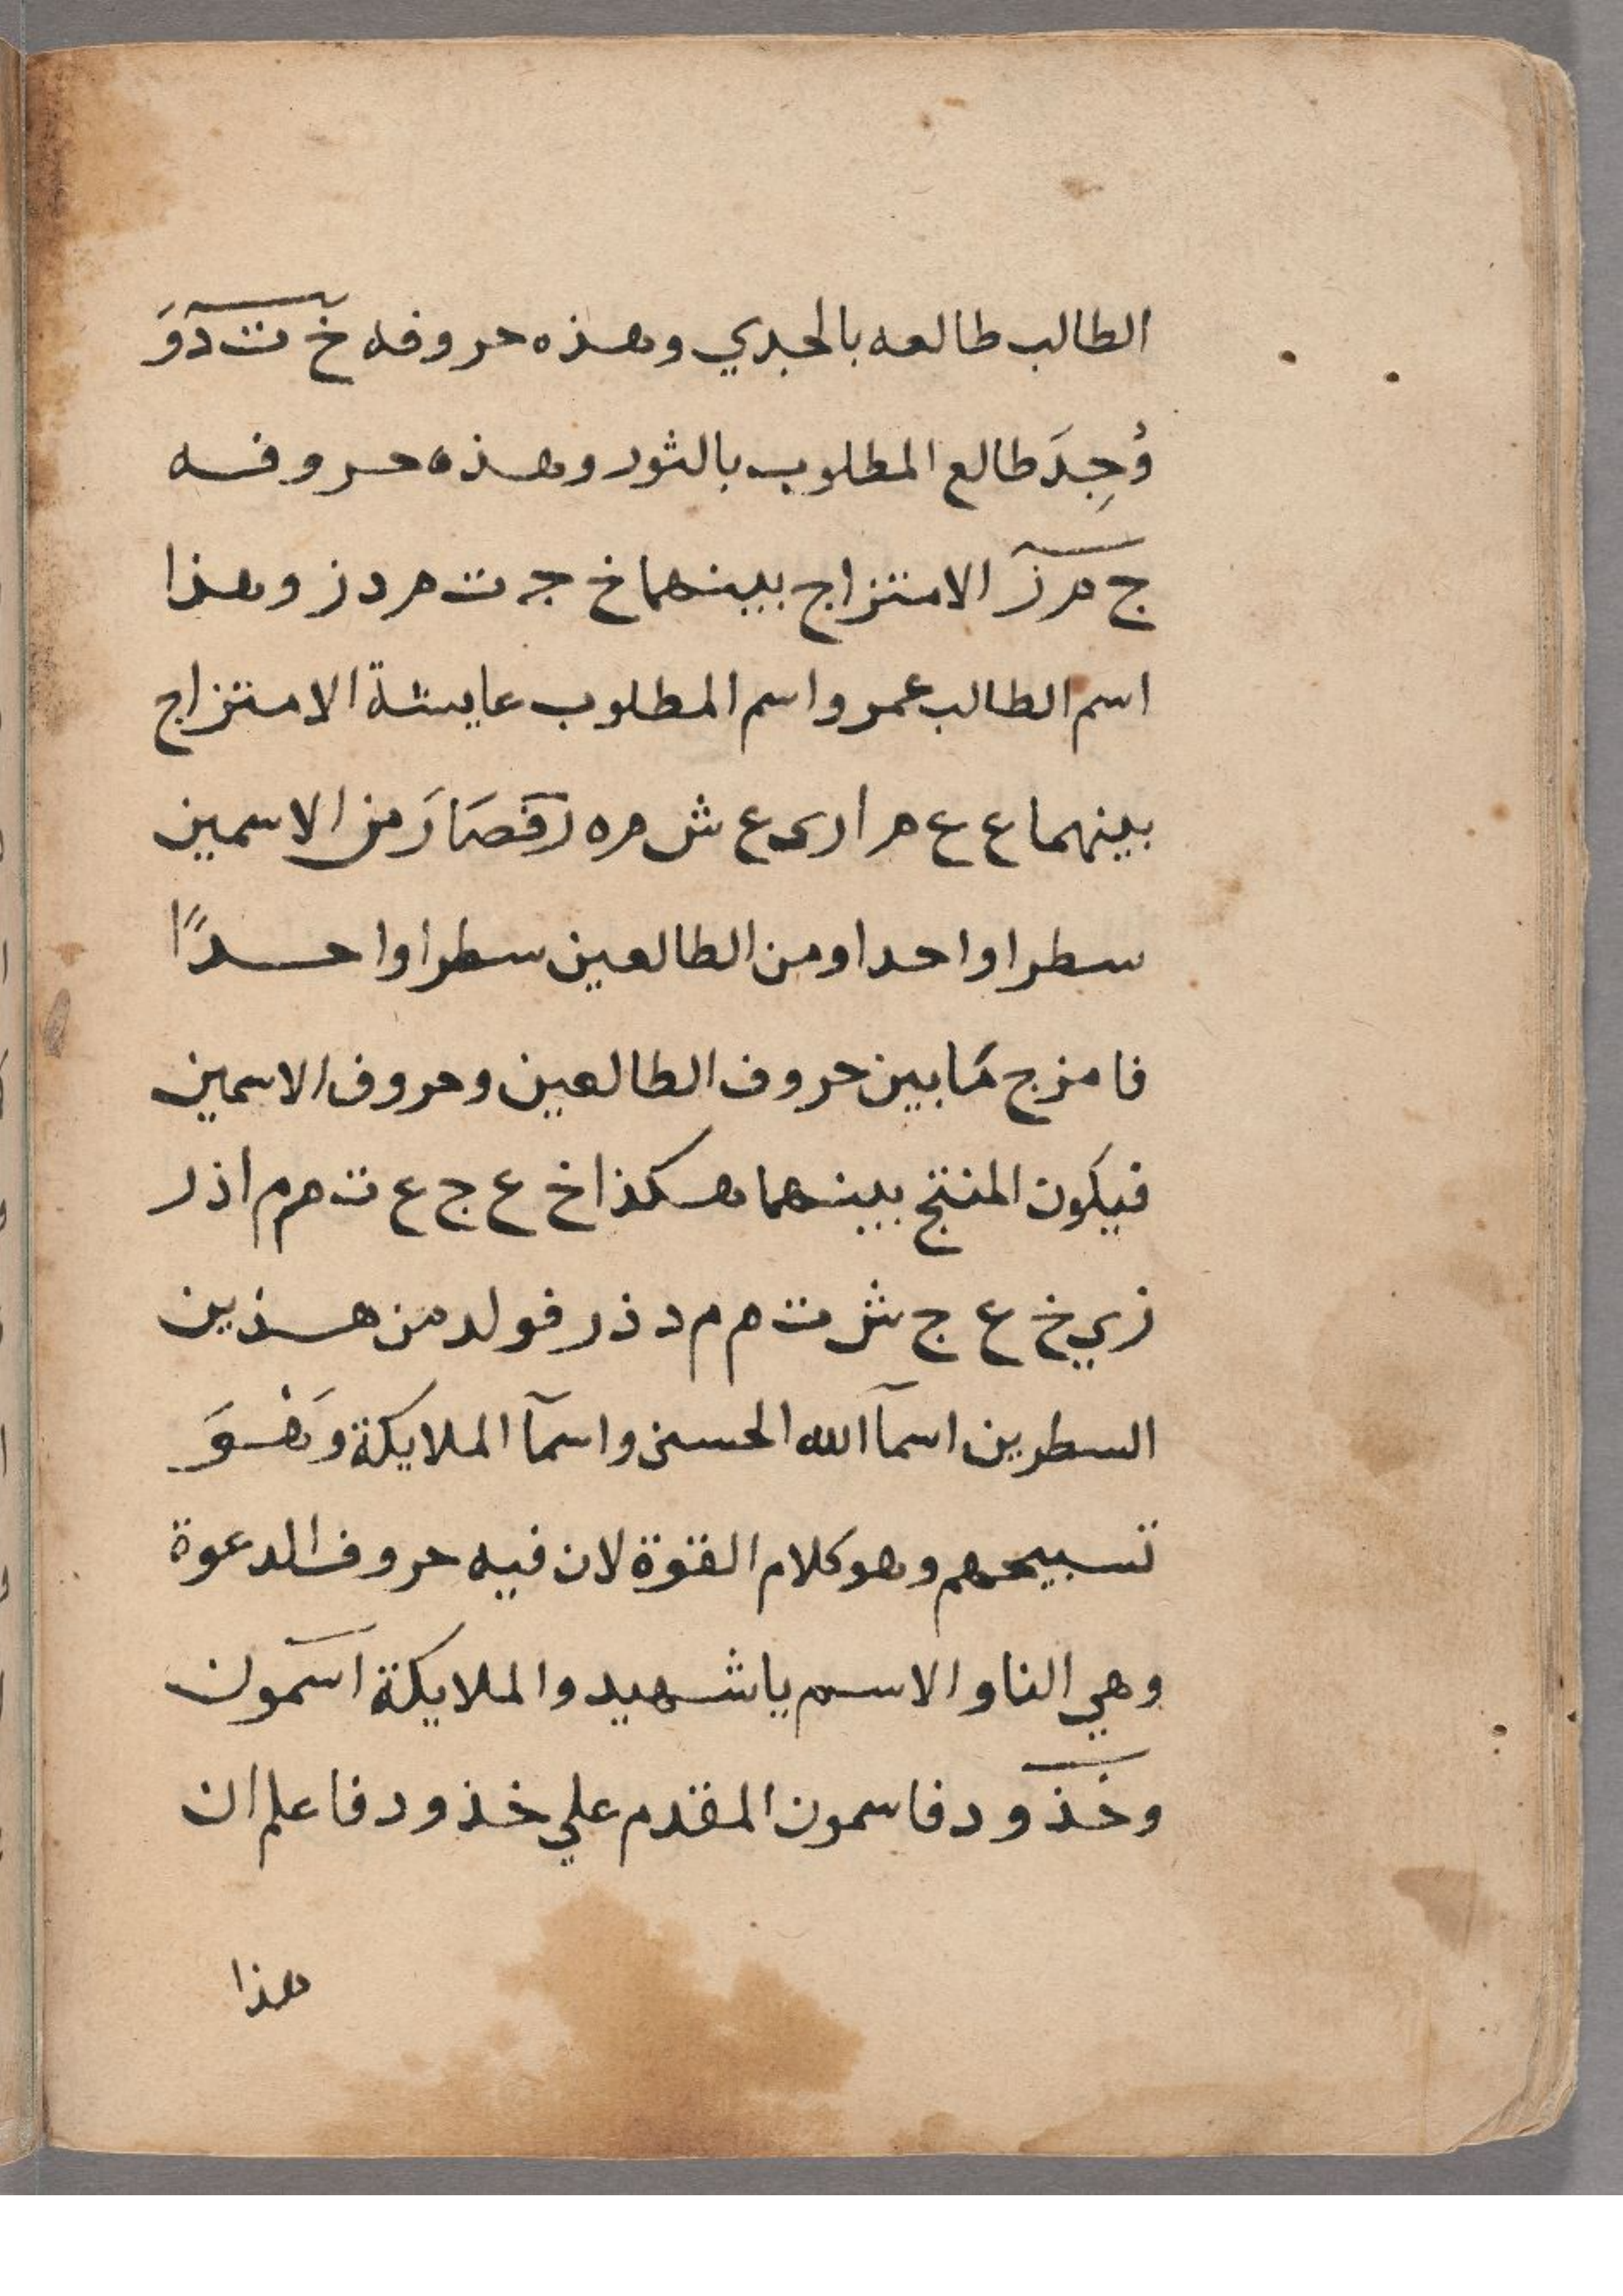 الطالب طالعه بالجدي وهذه حروفه خ ت د وَ
وُجِدَ طالع المطلوب بالثور وهذه حروفه
ج م ز الامتزاج بينهما خ ج ت م د ز وهذا
اسم الطالب عمر واسم المطلوب عايشة الامتزاج
بينهما ع ع م ا ر ى ع ش م ه ر فصَارَ من الاسمين
سطرا واحدا ومن الطالعين سطرا واحدًا
فامزج مَا بين حروف الطالعين وحروف الاسمين
فيكون المنتج بينهما هكذا خ ع ج ع ت م م ا د ر
ز ي خ ع ج ش ت م م د ذ ر فولد من هذين
السطرين اسمآ الله الحسنى واسمآ الملايكة وَهُوَ
تسبيحهم وهو كلام القوة لان فيه حروف الدعوة
وهي النا والاسم يا شهيد والملايكة اسمون
وخذود فاسمون المقدم علي خذود فاعلم ان
هذا